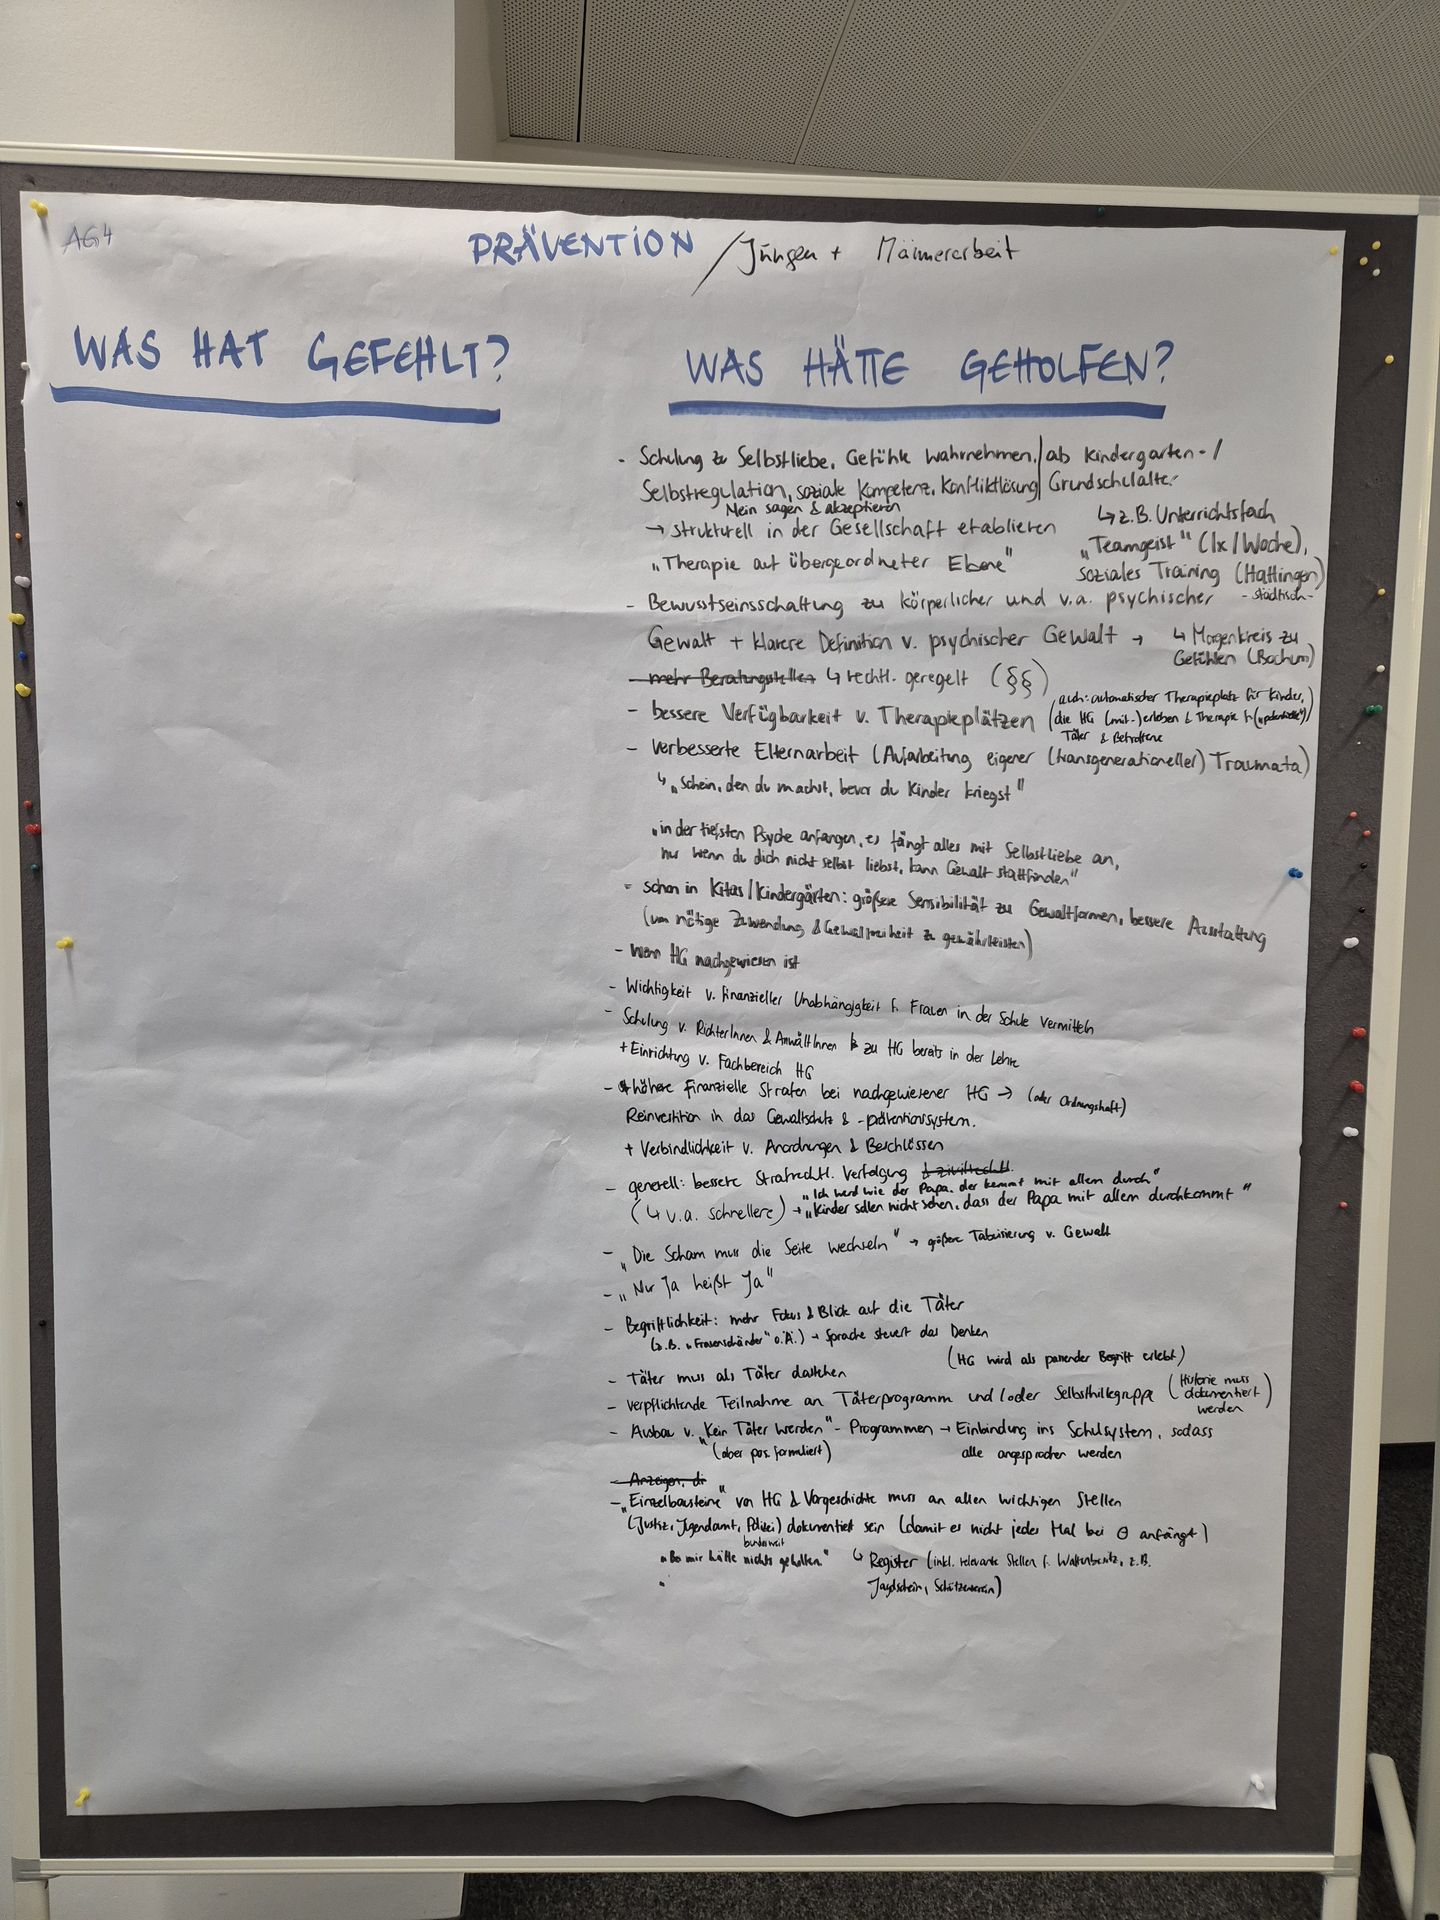 AG4
PRÄVENTION / Jungen + Männerarbeit
WAS HAT GEFEHLT?
WAS HÄTTE GEHOLFEN?
- Schulung zu Selbstliebe, Gefühle wahrnehmen, | ab Kindergarten- /
Selbstregulation, soziale Kompetenz, Konfliktlösung | Grundschulalter
Nein sagen & akzeptieren
↳ z.B. Unterrichtsfach
→ strukturell in der Gesellschaft etablieren
„Teamgeist" (1x/Woche),
„Therapie auf übergeordneter Ebene"
soziales Training (Hattingen)
- städtisch -
- Bewusstseinsschaffung zu körperlicher und v.a. psychischer
Gewalt + klarere Definition v. psychischer Gewalt →
↳ Morgenkreis zu
Gefühlen (Bochum)
- mehr Beratungsstellen ↳ rechtl. geregelt (§§)
- bessere Verfügbarkeit v. Therapieplätzen
(auch: automatischer Therapieplatz für Kinder,
die HG (mit-)erleben & Therapie f. („potentielle")
Täter & Betroffene
- verbesserte Elternarbeit (Aufarbeitung eigener (transgenerationeller) Traumata)
↳ „Schein, den du machst, bevor du Kinder kriegst"
„in der tiefsten Psyche anfangen, es fängt alles mit Selbstliebe an,
nur wenn du dich nicht selbst liebst, kann Gewalt stattfinden"
- schon in Kitas/Kindergärten: größere Sensibilität zu Gewaltformen, bessere Ausstattung
(um nötige Zuwendung & Gewaltfreiheit zu gewährleisten)
- wenn HG nachgewiesen ist
- Wichtigkeit v. finanzieller Unabhängigkeit f. Frauen in der Schule vermitteln
- Schulung v. RichterInnen & AnwältInnen zu HG bereits in der Lehre
+ Einrichtung v. Fachbereich HG
- höhere finanzielle Strafen bei nachgewiesener HG → (oder Ordnungshaft)
Reinvestition in das Gewaltschutz & -präventionssystem.
+ Verbindlichkeit v. Anordnungen & Beschlüssen
- generell: bessere strafrechtl. Verfolgung & zivilrechtl.
„Ich werd wie der Papa, der kommt mit allem durch"
(↳ v.a. schnellere) → „Kinder sollen nicht sehen, dass der Papa mit allem durchkommt"
- „Die Scham muss die Seite wechseln" → größere Tabuisierung v. Gewalt
- „Nur Ja heißt Ja"
- Begrifflichkeit: mehr Fokus & Blick auf die Täter
(z.B. „Frauenschänder" o.Ä.) → Sprache steuert das Denken
(HG wird als passender Begriff erlebt)
- Täter muss als Täter dastehen
- verpflichtende Teilnahme an Täterprogramm und/oder Selbsthilfegruppe (Historie muss
dokumentiert
werden)
- Ausbau v. „Kein Täter werden"- Programmen → Einbindung ins Schulsystem, sodass
(aber pos. formuliert)
alle angesprochen werden
- Anzeigen, di
- „Einzelbausteine" von HG & Vorgeschichte muss an allen wichtigen Stellen
(Justiz, Jugendamt, Polizei) dokumentiert sein (damit es nicht jedes Mal bei 0 anfängt)
bundesweit
„Bei mir hätte nichts geholfen."
↳ Register (inkl. relevante Stellen f. Waffenbesitz, z.B.
Jagdschein, Schützenverein)